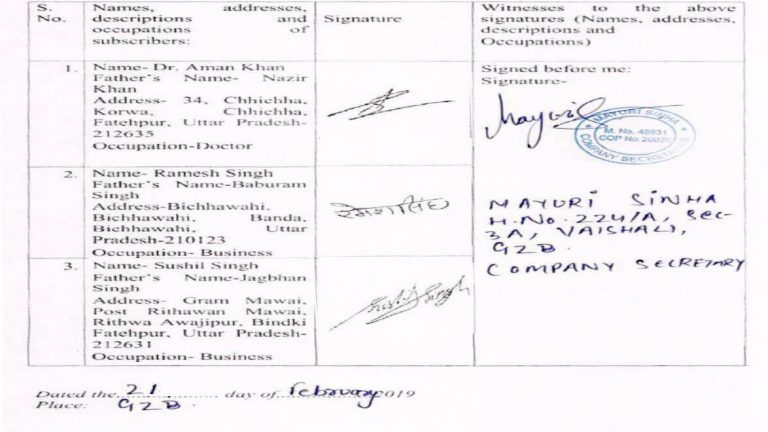 S. No.
Names, addresses, descriptions and occupations of subscribers:
Signature
Witnesses to the above signatures (Names, addresses, descriptions and Occupations)
1.
Name- Dr. Aman Khan
Father's Name- Nazir
Khan
Address- 34, Chhichha,
Korwa, Chhichha,
Fatehpur, Uttar Pradesh-
212635
Occupation-Doctor
Signed before me:
Signature-
Mayuri
MAYURI SINHA
M. No. 48931
COMPANY SECRETARIES
2.
Name- Ramesh Singh
Father's Name-Baburam
Singh
Address-Bichhawahi,
Bichhawahi, Banda,
Bichhawahi, Uttar
Pradesh-210123
Occupation- Business
रमेश सिंह
MAYURI SINHA
H.No. 224/A, Sec-
3A, VAISHALI,
GZB.
COMPANY SECRETARY
3.
Name- Sushil Singh
Father's Name-Jagbhan
Singh
Address- Gram Mawai,
Post Rithawan Mawai,
Rithwa Awajipur, Bindki
Fatehpur, Uttar Pradesh-
212631
Occupation- Business
Sushil Singh
Dated the 21 day of February 2019
Place: GZB.